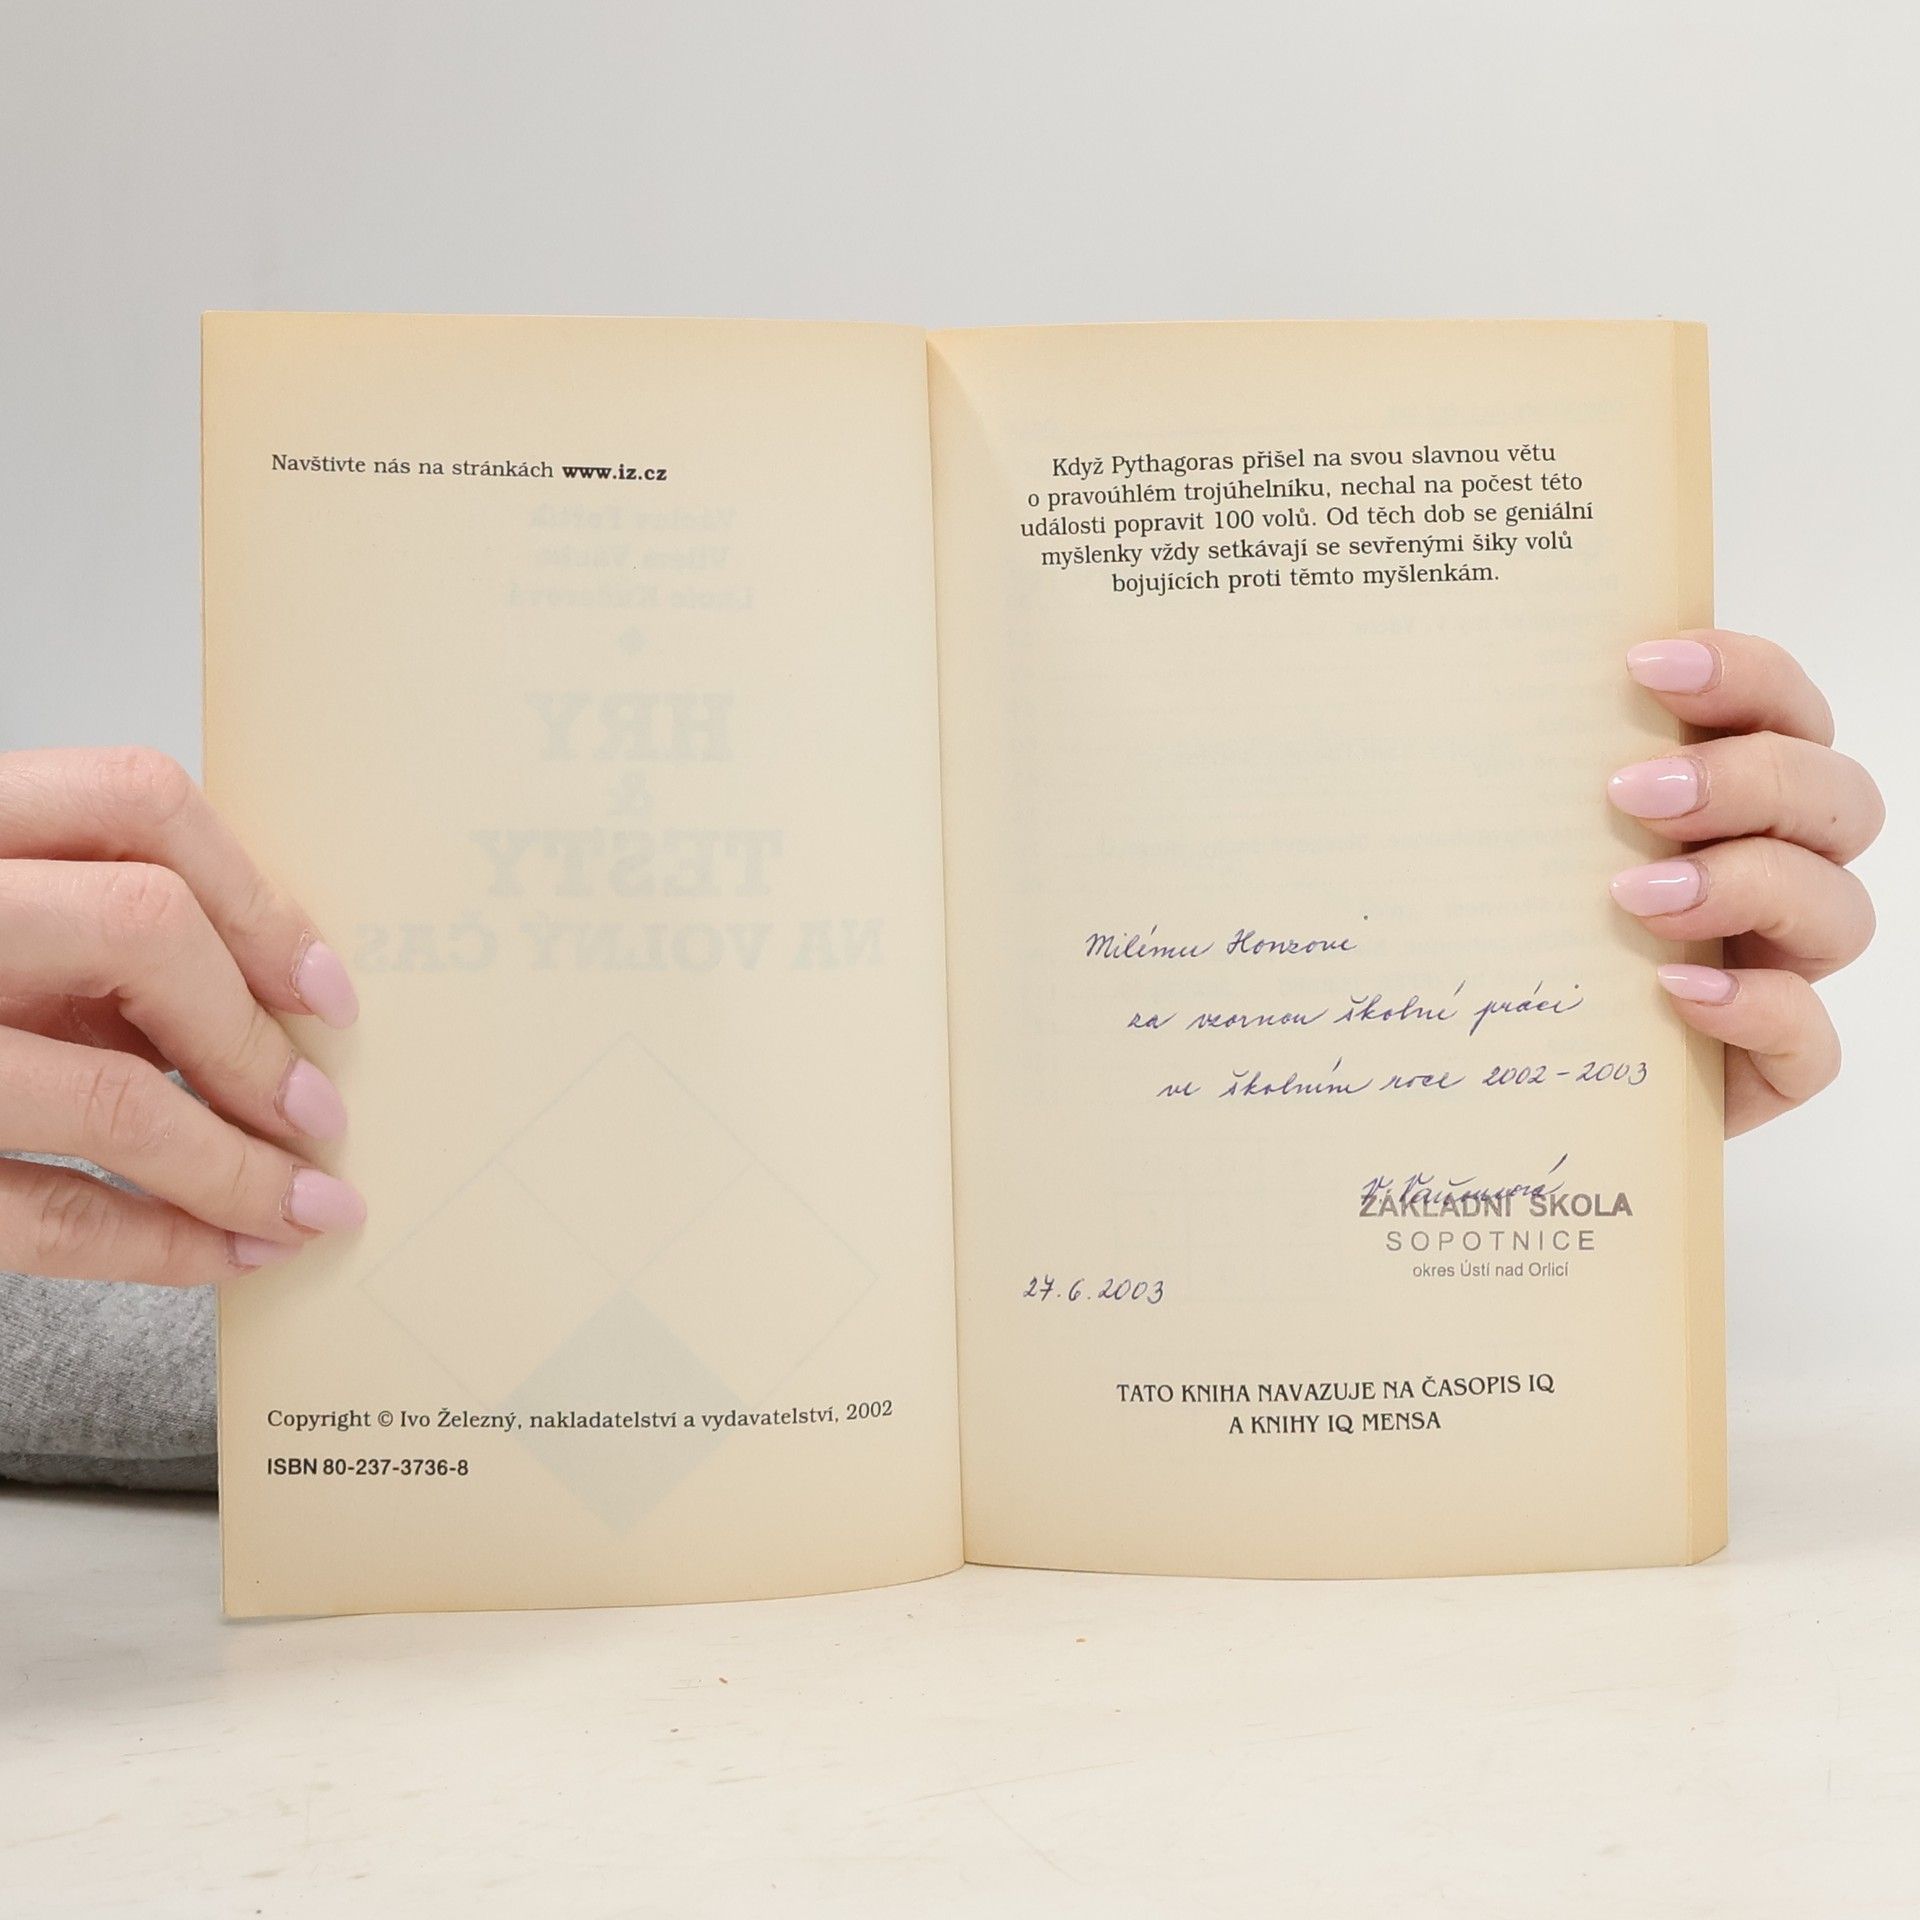 Navštivte nás na stránkách www.iz.cz
HRY
&
TESTY
NA VOLNÝ ČAS
Copyright © Ivo Železný, nakladatelství a vydavatelství, 2002
ISBN 80-237-3736-8
Když Pythagoras přišel na svou slavnou větu
o pravoúhlém trojúhelníku, nechal na počest této
události popravit 100 volů. Od těch dob se geniální
myšlenky vždy setkávají se sevřenými šiky volů
bojujících proti těmto myšlenkám.
Milému Honzovi
za vzornou školní práci
ve školním roce 2002 – 2003
ZÁKLADNÍ ŠKOLA
SOPOTNICE
okres Ústí nad Orlicí
27.6.2003
TATO KNIHA NAVAZUJE NA ČASOPIS IQ
A KNIHY IQ MENSA